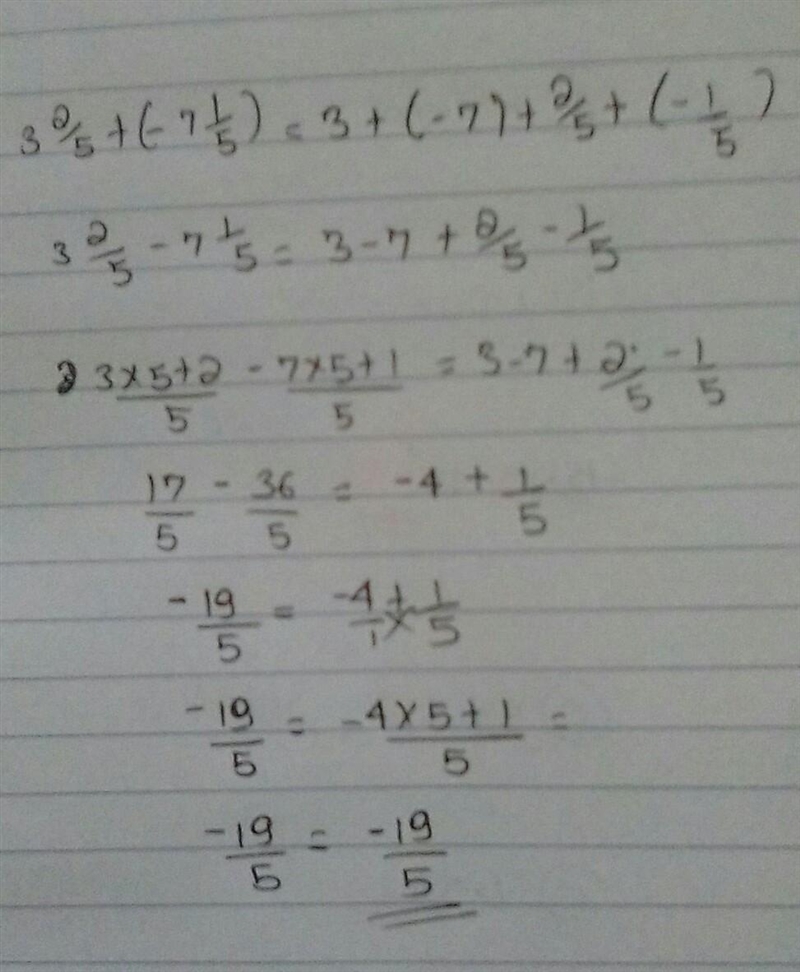 3 2/5 + (- 7 1/5) = 3 + (-7) + 2/5 + (- 1/5)
3 2/5 - 7 1/5 = 3 - 7 + 2/5 - 1/5
3×5+2/5 - 7×5+1/5 = 3-7 + 2/5 - 1/5
17/5 - 36/5 = -4 + 1/5
-19/5 = -4/1 + 1/5
-19/5 = -4×5+1/5 =
-19/5 = -19/5